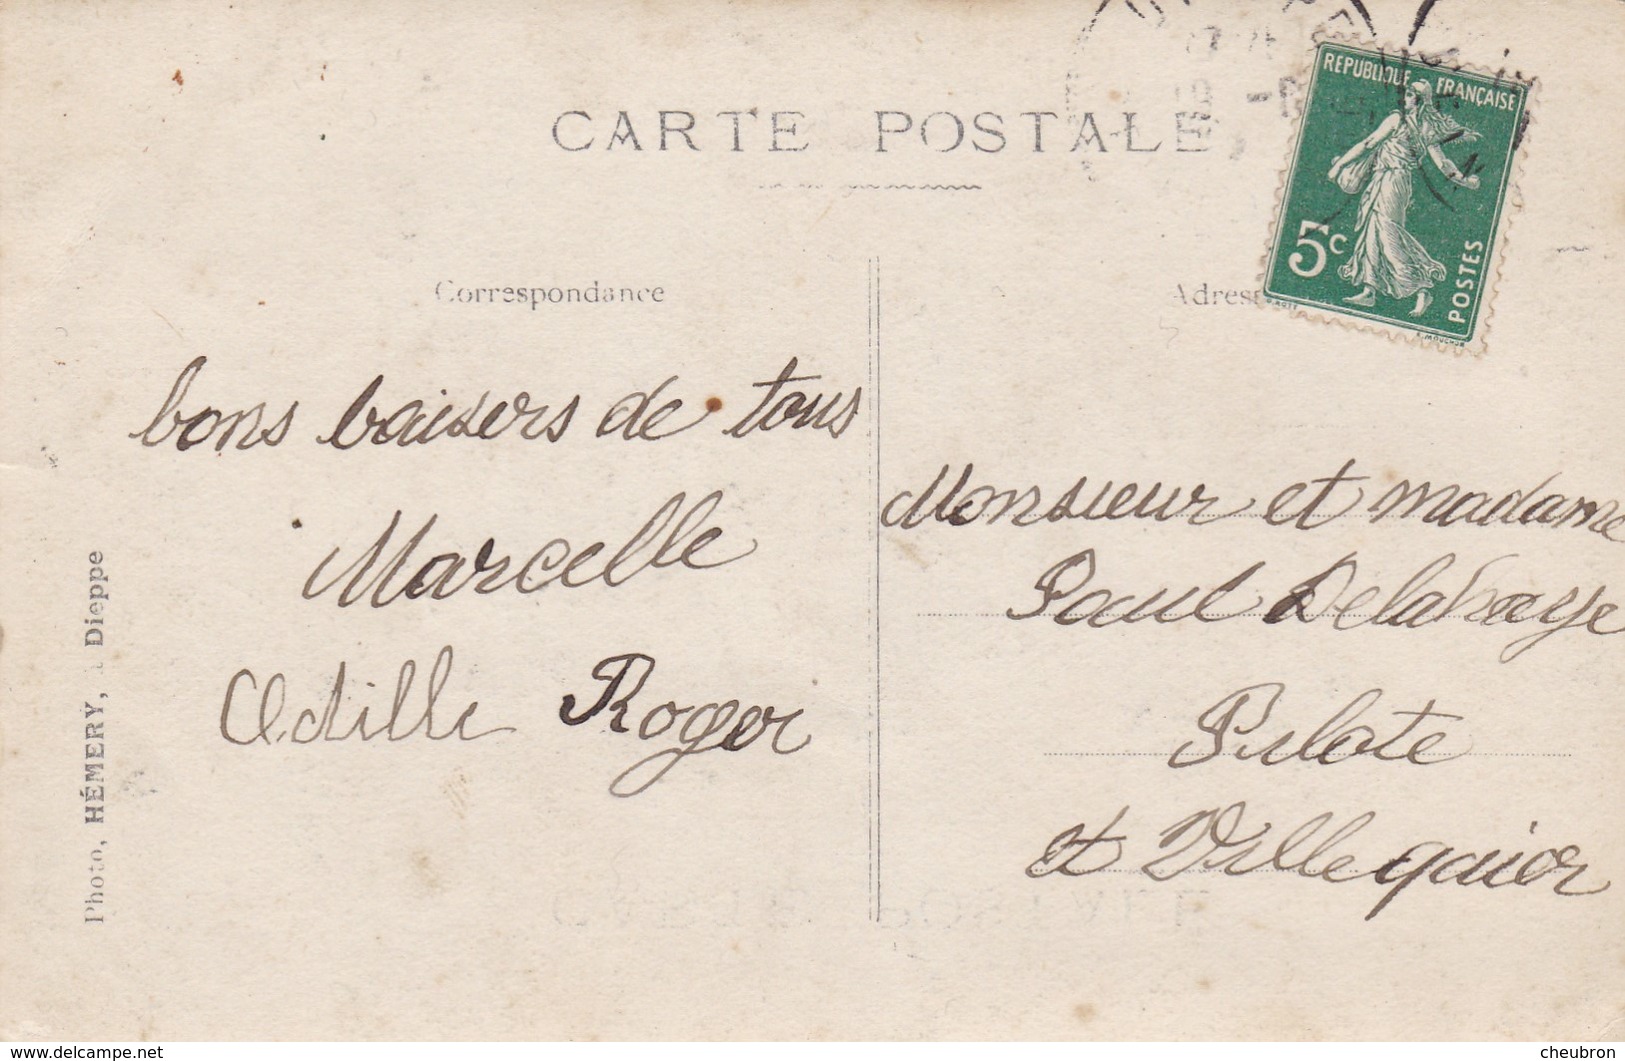 CARTE POSTALE
RÉPUBLIQUE FRANÇAISE
5c
POSTES
E. MOUCHON
Correspondance
bons baisers de tous
Marcelle
Odille Roger
Monsieur et madame
Paul Delahaye
Pilote
et Villequier
Photo, HÉMERY, à Dieppe
www.delcampe.net
cheubron